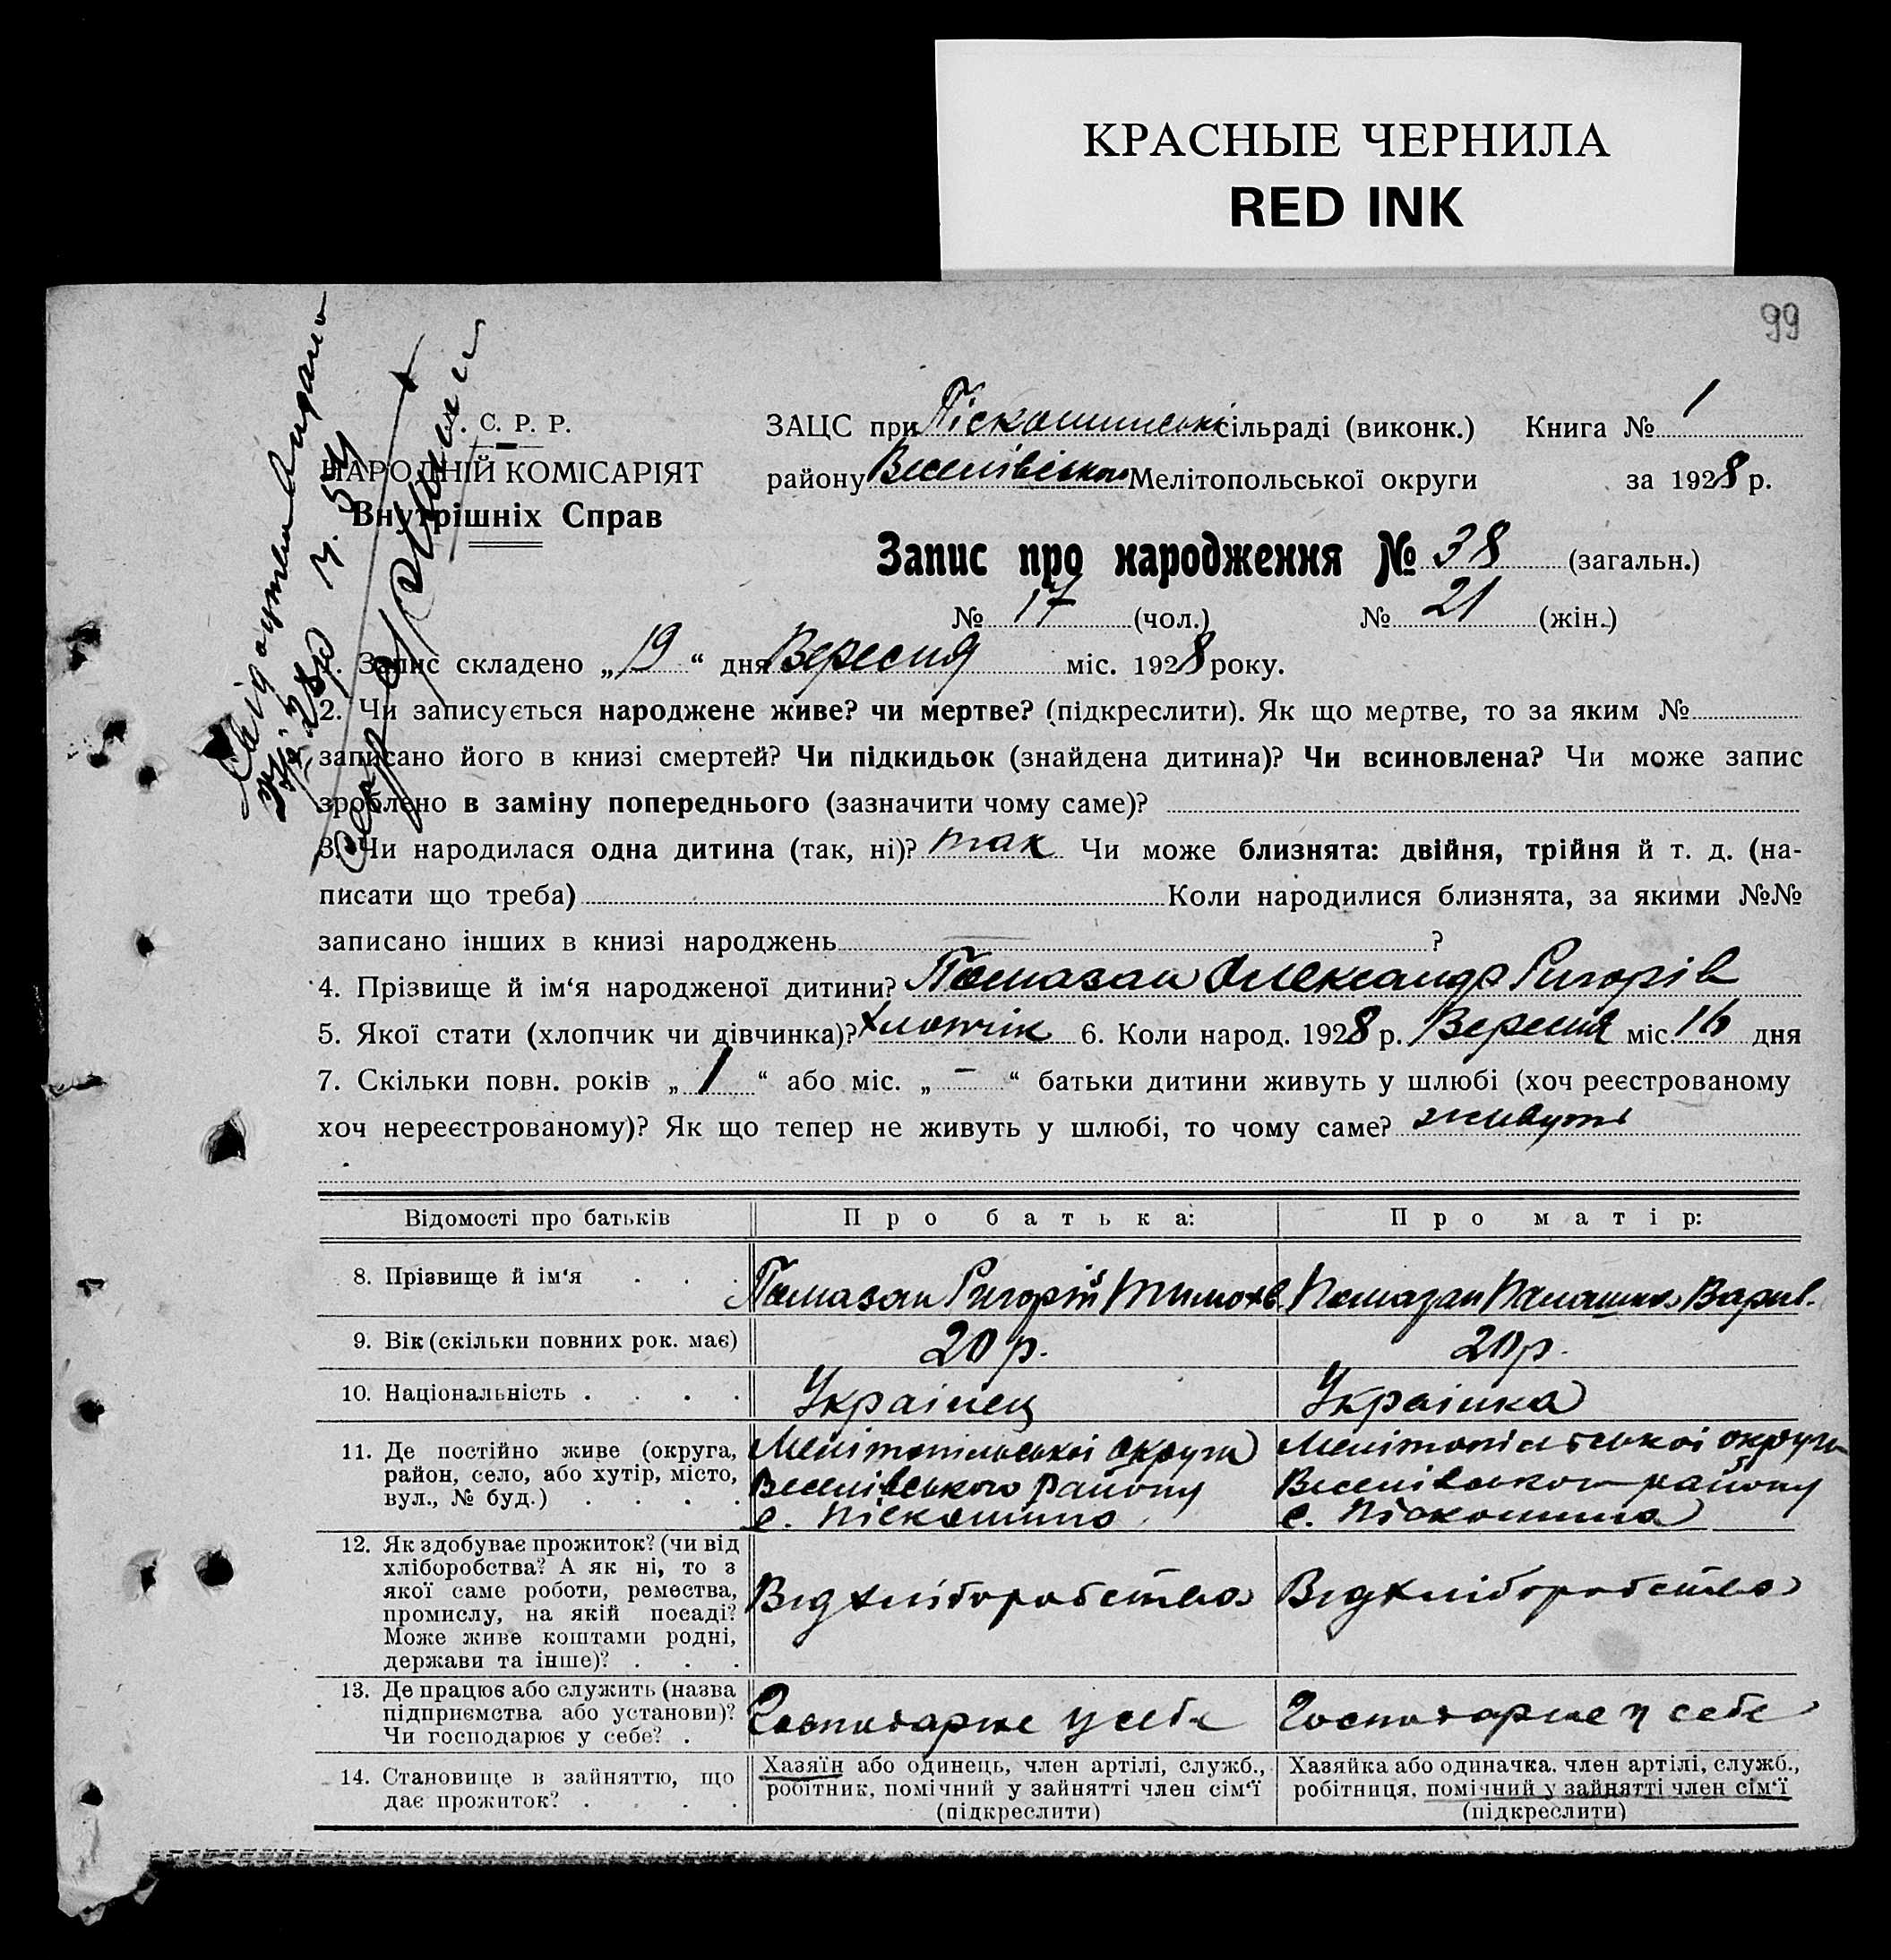 КРАСНЫЕ ЧЕРНИЛА
RED INK
99
. С. Р. Р.
НАРОДНІЙ КОМІСАРІЯТ
Внутрішніх Справ
ЗАЦС при Піскошинські сільраді (виконк.) Книга № 1
району Веселівського Мелітопольської округи за 1928 р.
Запис про народження № 38 (загальн.)
№ 17 (чол.) № 21 (жін.)
1. Запис складено „19“ дня Вересня міс. 1928 року.
2. Чи записується народжене живе? чи мертве? (підкреслити). Як що мертве, то за яким №
записано його в книзі смертей? Чи підкидьок (знайдена дитина)? Чи всиновлена? Чи може запис
зроблено в заміну попереднього (зазначити чому саме)?
3. Чи народилася одна дитина (так, ні)? так Чи може близнята: двійня, трійня й т. д. (на-
писати що треба) Коли народилися близнята, за якими №№
записано інших в книзі народжень ?
4. Прізвище й ім‘я народженої дитини? Помазан Олександр Григорів
5. Якої стати (хлопчик чи дівчинка)? хлопчік 6. Коли народ. 1928 р. Вересня міс. 16 дня
7. Скільки повн. років „ 1 “ або міс. „ - “ батьки дитини живуть у шлюбі (хоч реєстрованому
хоч нереєстрованому)? Як що тепер не живуть у шлюбі, то чому саме? живуть
Відомості про батьків Про батька: Про матір:
8. Прізвище й ім‘я . . . Помазан Григорій Тимохв. Помазан Палашка Варив.
9. Вік (скільки повних рок. має) 20 р. 20 р.
10. Національність . . . . Українец Українка
11. Де постійно живе (округа,
район, село, або хутір, місто,
вул., № буд.) . . . .
Мелітопільської округи
Веселівського району
с. Піскошино
Мелітопільської округи
Веселівського району
с. Піскошина
12. Як здобуває прожиток? (чи від
хліборобства? А як ні, то з
якої саме роботи, ремества,
промислу, на якій посаді?
Може живе коштами родні,
держави та інше)? . . .
Від хліборобства
Від хліборобства
13. Де працює або служить (назва
підприємства або установи)?
Чи господарює у себе? .
Господарює у себе
Господарює у себе
14. Становище в зайняттю, що
дає прожиток? . . . .
Хазяїн або одинець, член артілі, служб.,
робітник, помічний у зайнятті член сім‘ї
(підкреслити)
Хазяйка або одиначка. член артілі, служб.,
робітниця, помічний у зайнятті член сім‘ї
(підкреслити)